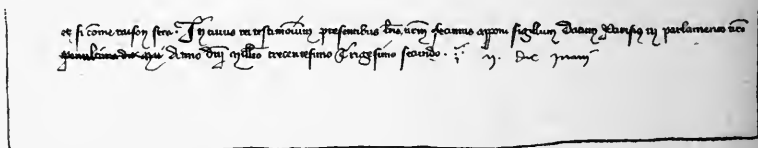 et si come raison sera. In cuius rei testimonium presentibus litteris nostrum fecimus apponi sigillum Datum Parisius in parlamento nostro
Anno dni millesimo trecentesimo Trigesimo secundo. ij. die